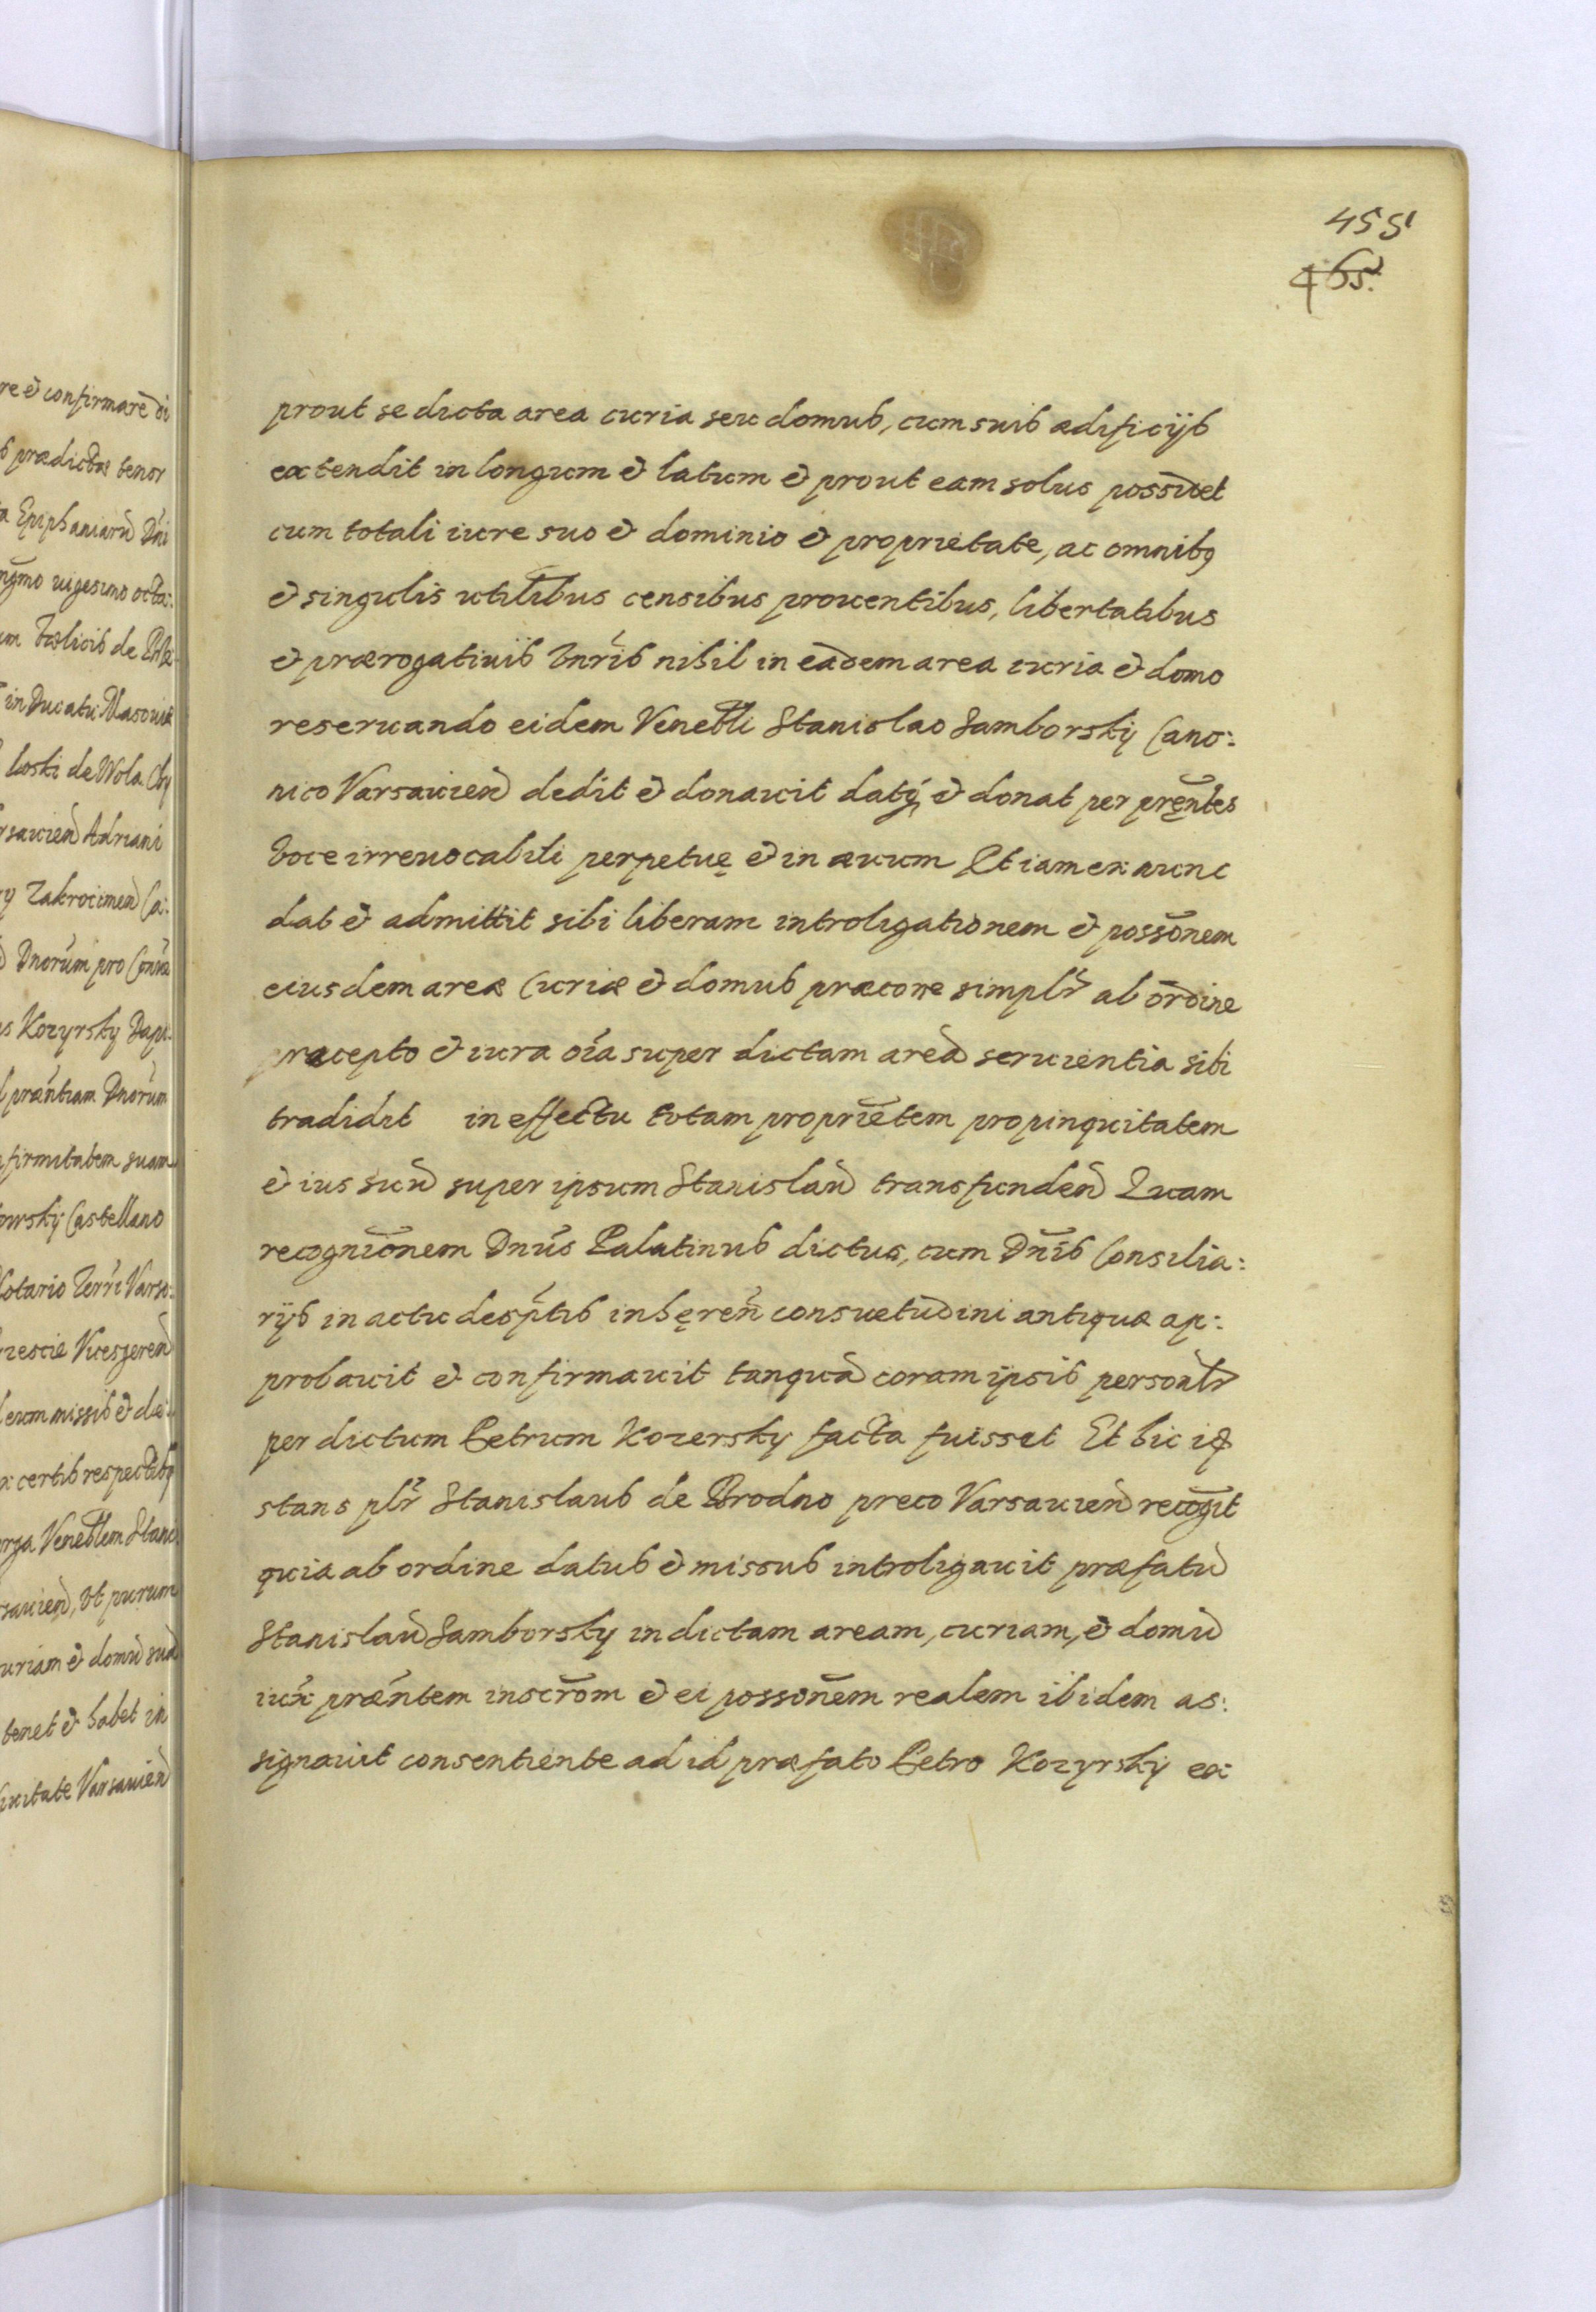 455
465.
re & confirmare di
prædictæ tenor
Epiphaniarũ Dñi
vigesimo octa:
fœlicis de
in Ducatu Masoviæ
Loski de Wola
Adriani
Zakrocimeñ Ca:
Dnorum pro
Kozyrsky Dapi:
præntiam Dnorum
firmitatem suam
Castellano
Notario Terrę Varso:
Vicesgereñ
eum missis & de:
certis respectibꝰ
erga Veneblem Stani
ut purum
curiam & domũ suã
tenet & habet in
Civitate Varsavieñ
prout se dicta area curia seu domus, cum suis ædificijs
extendit in longum & latum & prout eam solus possidet
cum totali iure suo & dominio & proprietate, ac omnibꝰ
& singulis utilibus censibus proventibus, libertatibus
& prærogativis Vnris nihil in eadem area curia & domo
reservando eidem Venebli Stanislao Samborsky Cano:
nico Varsavieñ dedit & donavit datqꝫ & donat per pręntes
voce irrevocabili perpetuę & in ævum Et iam ex nunc
dat & admittit sibi liberam introligationem & possonem
eiusdem areæ Curiæ & domus præcone simplr ab ordine
præcepto & iura oia super dictam areã servientia sibi
tradidit in effectu totam proprietem propinquitatem
& ius suũ super ipsum Stanislaũ transfundeñ Quam
recognionem Dnus Palatinus dictus, cum Dnis Consilia:
rijs in actu desptis inhęreñ consuetudini antiquæ ap:
probavit & confirmavit tanquã coram ipsis personlr
per dictum Petrum Kozersky facta fuisset Et hic id
stans plr Stanislaus de Brodno preco Varsavieñ recogit
quia ab ordine datus & missus introligavit præfatũ
Stanislaũ Samborsky in dictam aream, curiam, & domũ
iux præntem inscrom & ei possonem realem ibidem as:
signavit consentiente ad id præfato Petro Kozyrsky ex